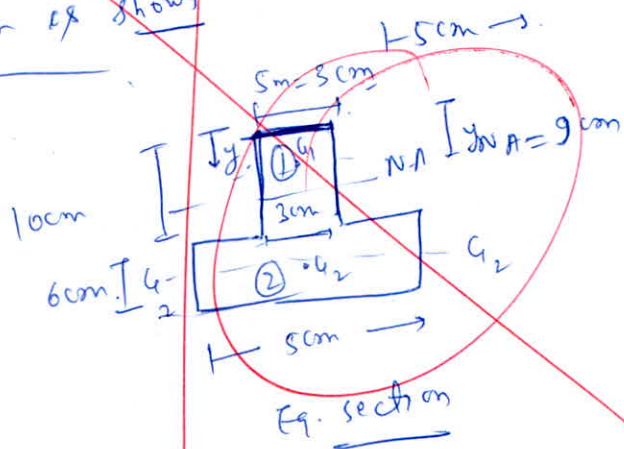 as shows
5cm
5m = 3cm
y
① G1
NA
yNA = 9cm
10cm
3cm
6cm
G
2
② G2
G2
5cm
Eq. section